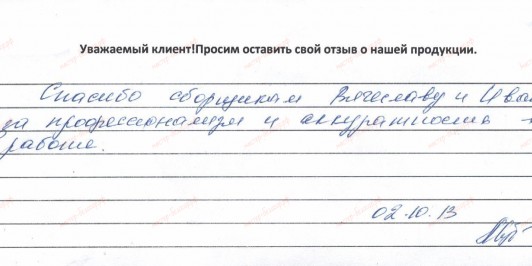 Уважаемый клиент!Просим оставить свой отзыв о нашей продукции.
Спасибо сборщикам Вячеславу и Ива
за профессионализм и аккуратность
работе.
02.10.13